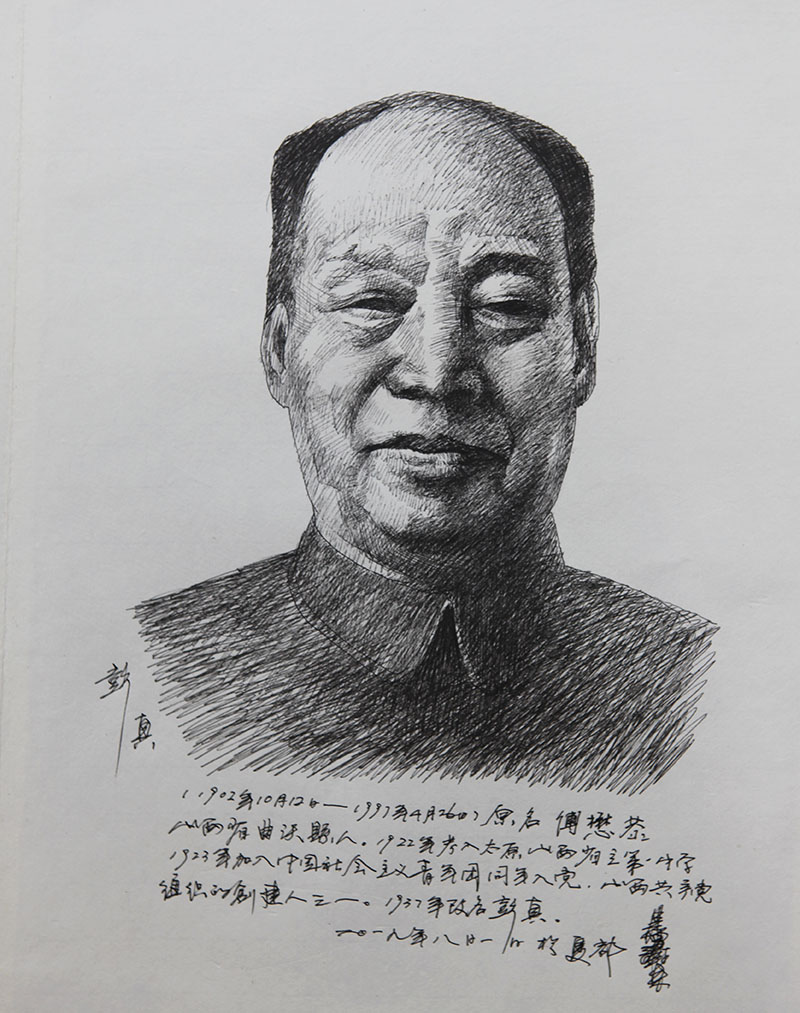 彭真
(1902年10月12日—1997年4月26日)原名傅懋恭
山西省曲沃县人。1922年考入太原山西省立第一中学
1923年加入中国社会主义青年团同年入党.山西共产党
组织的创建人之一。1937年改名彭真.
二〇一九年八月一日于夏都